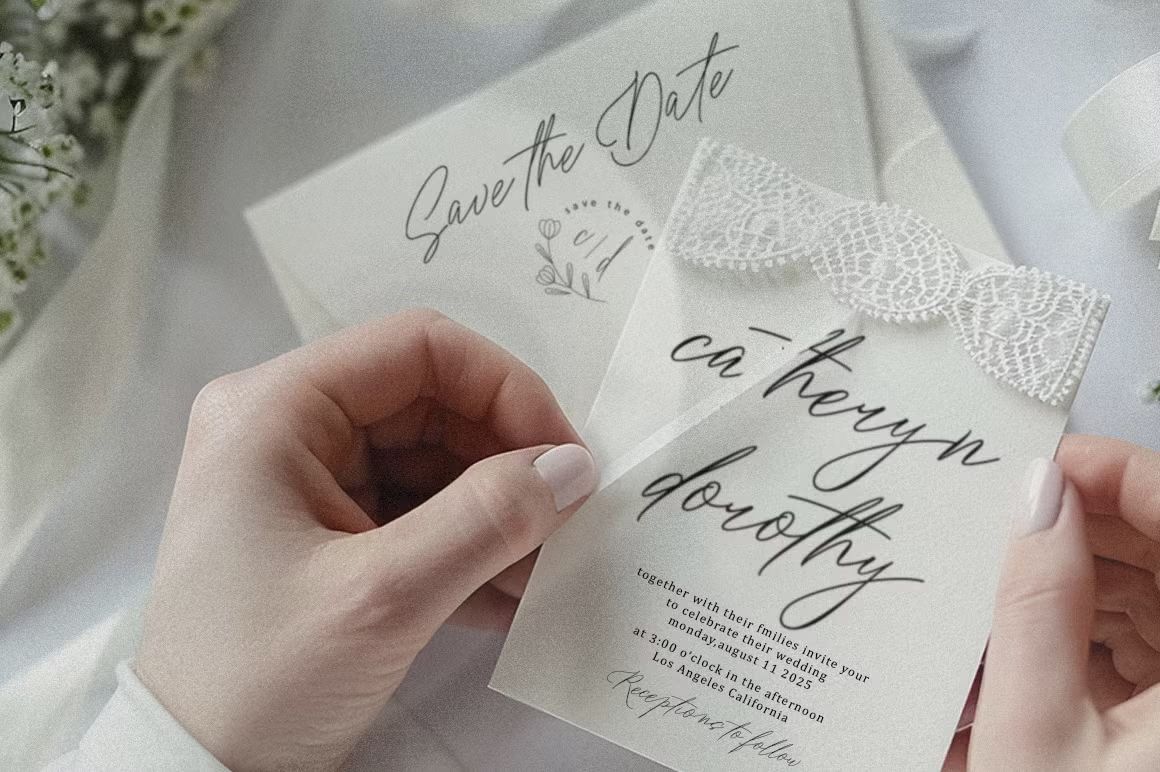 Save the Date
save the date
c/d
catheryn
dorothy
together with their fmilies invite your
to celebrate their wedding
monday,august 11 2025
at 3:00 o'clock in the afternoon
Los Angeles California
Receptions to follow